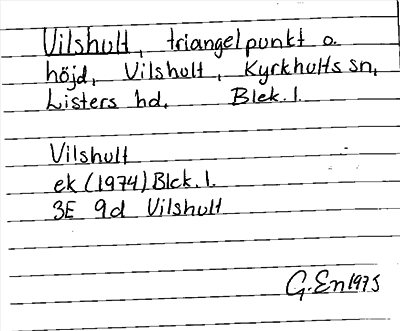 Vilshult, triangelpunkt o.
höjd, Vilshult, Kyrkhults sn,
Listers hd, Blek. l.
Vilshult
ek (1974) Blek. l.
3E 9d Vilshult
G. En 1975